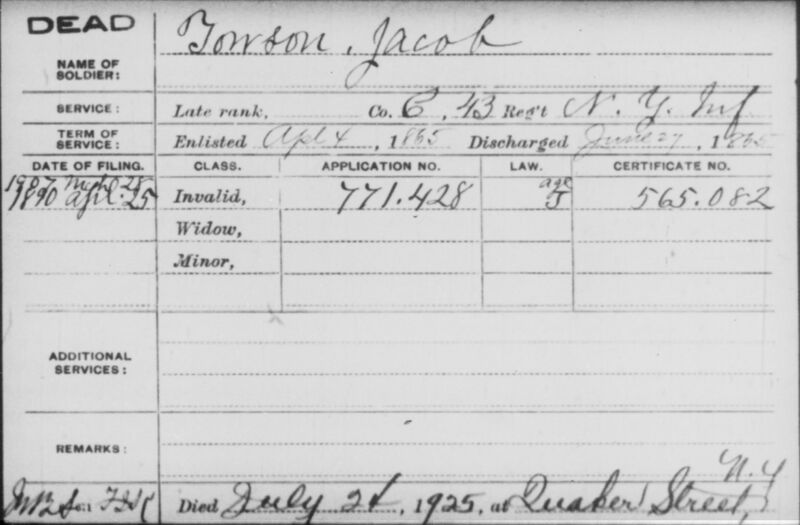 DEAD
NAME OF SOLDIER: Towson, Jacob
SERVICE: Late rank, Co. C, 43 Reg't N. Y. Inf
TERM OF SERVICE: Enlisted Apl 4, 1865 Discharged June 27, 1865
DATE OF FILING. CLASS. APPLICATION NO. LAW. CERTIFICATE NO.
1907 Mch 25 age
1890 Apl. 25 Invalid, 771.428 J 565.082
Widow,
Minor,
ADDITIONAL SERVICES:
REMARKS:
N.Y
Died July 24, 1925, at Quaker Street,